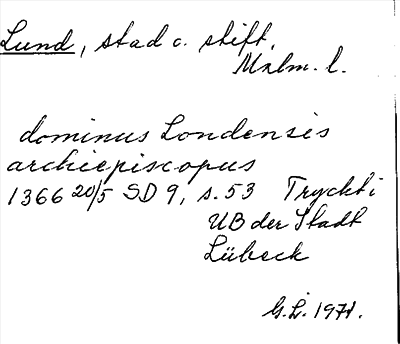 Lund, stad o. stift,
Malm. l.
dominus Londensis
archiepiscopus
1366 20/5 SD 9, s. 53 Tryckt i
UB der Stadt
Lübeck
G.L. 1971.